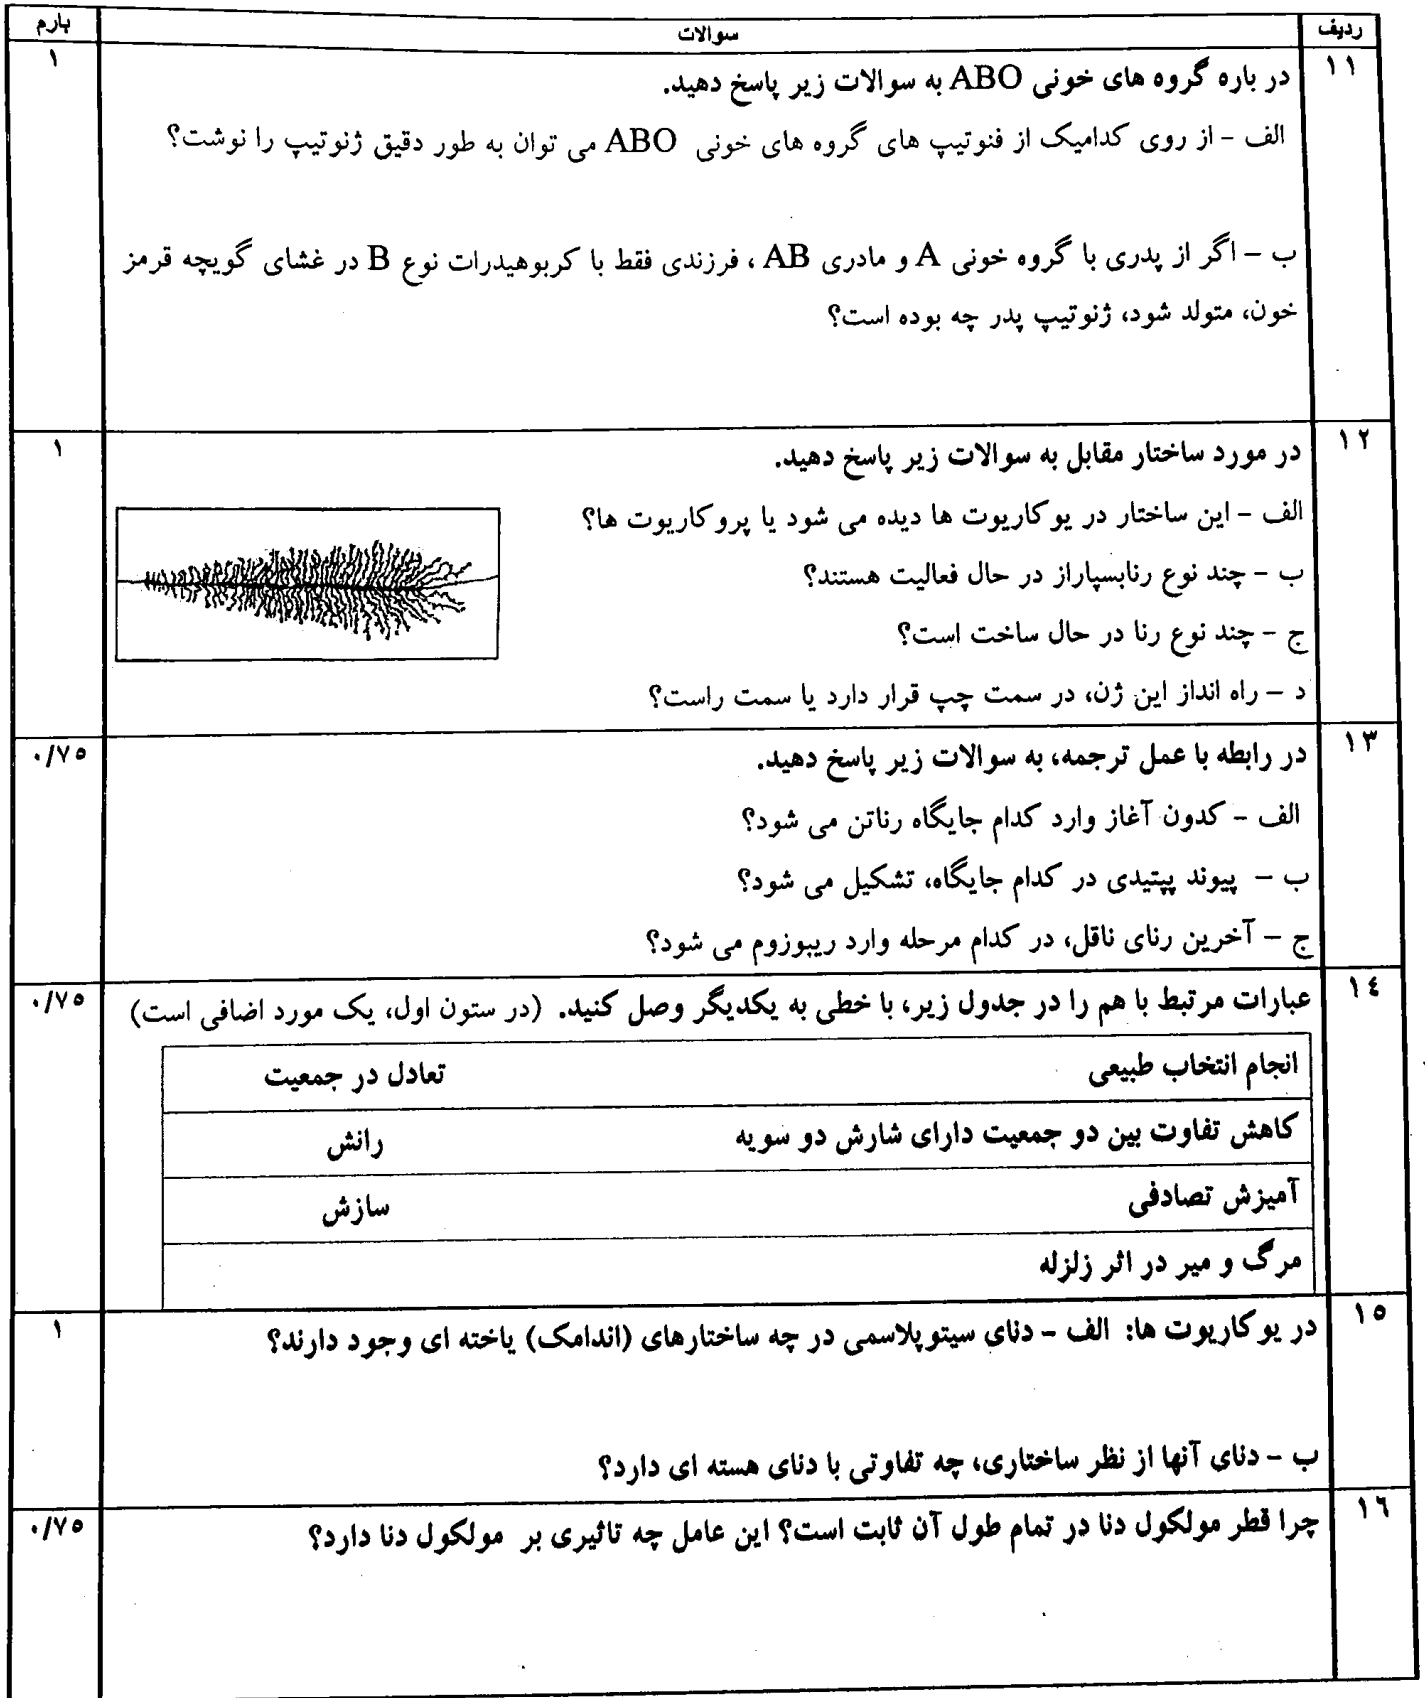 ردیف سوالات بارم
۱۱ در باره گروه های خونی ABO به سوالات زیر پاسخ دهید. ۱
الف - از روی کدامیک از فنوتیپ های گروه های خونی ABO می توان به طور دقیق ژنوتیپ را نوشت؟
ب – اگر از پدری با گروه خونی A و مادری AB ، فرزندی فقط با کربوهیدرات نوع B در غشای گویچه قرمز
خون، متولد شود، ژنوتیپ پدر چه بوده است؟
۱۲ در مورد ساختار مقابل به سوالات زیر پاسخ دهید. ۱
الف - این ساختار در یوکاریوت ها دیده می شود یا پروکاریوت ها؟
ب - چند نوع رنابسپاراز در حال فعالیت هستند؟
ج - چند نوع رنا در حال ساخت است؟
د – راه انداز این ژن، در سمت چپ قرار دارد یا سمت راست؟
۱۳ در رابطه با عمل ترجمه، به سوالات زیر پاسخ دهید. ۰/۷۵
الف - کدون آغاز وارد کدام جایگاه رناتن می شود؟
ب – پیوند پپتیدی در کدام جایگاه، تشکیل می شود؟
ج – آخرین رنای ناقل، در کدام مرحله وارد ریبوزوم می شود؟
۱٤ عبارات مرتبط با هم را در جدول زیر، با خطی به یکدیگر وصل کنید. (در ستون اول، یک مورد اضافی است) ۰/۷۵
انجام انتخاب طبیعی تعادل در جمعیت
کاهش تفاوت بین دو جمعیت دارای شارش دو سویه رانش
آمیزش تصادفی سازش
مرگ و میر در اثر زلزله
۱۵ در یوکاریوت ها: الف - دنای سیتوپلاسمی در چه ساختارهای (اندامک) یاخته ای وجود دارند؟ ۱
ب - دنای آنها از نظر ساختاری، چه تفاوتی با دنای هسته ای دارد؟
۱٦ چرا قطر مولکول دنا در تمام طول آن ثابت است؟ این عامل چه تاثیری بر مولکول دنا دارد؟ ۰/۷۵